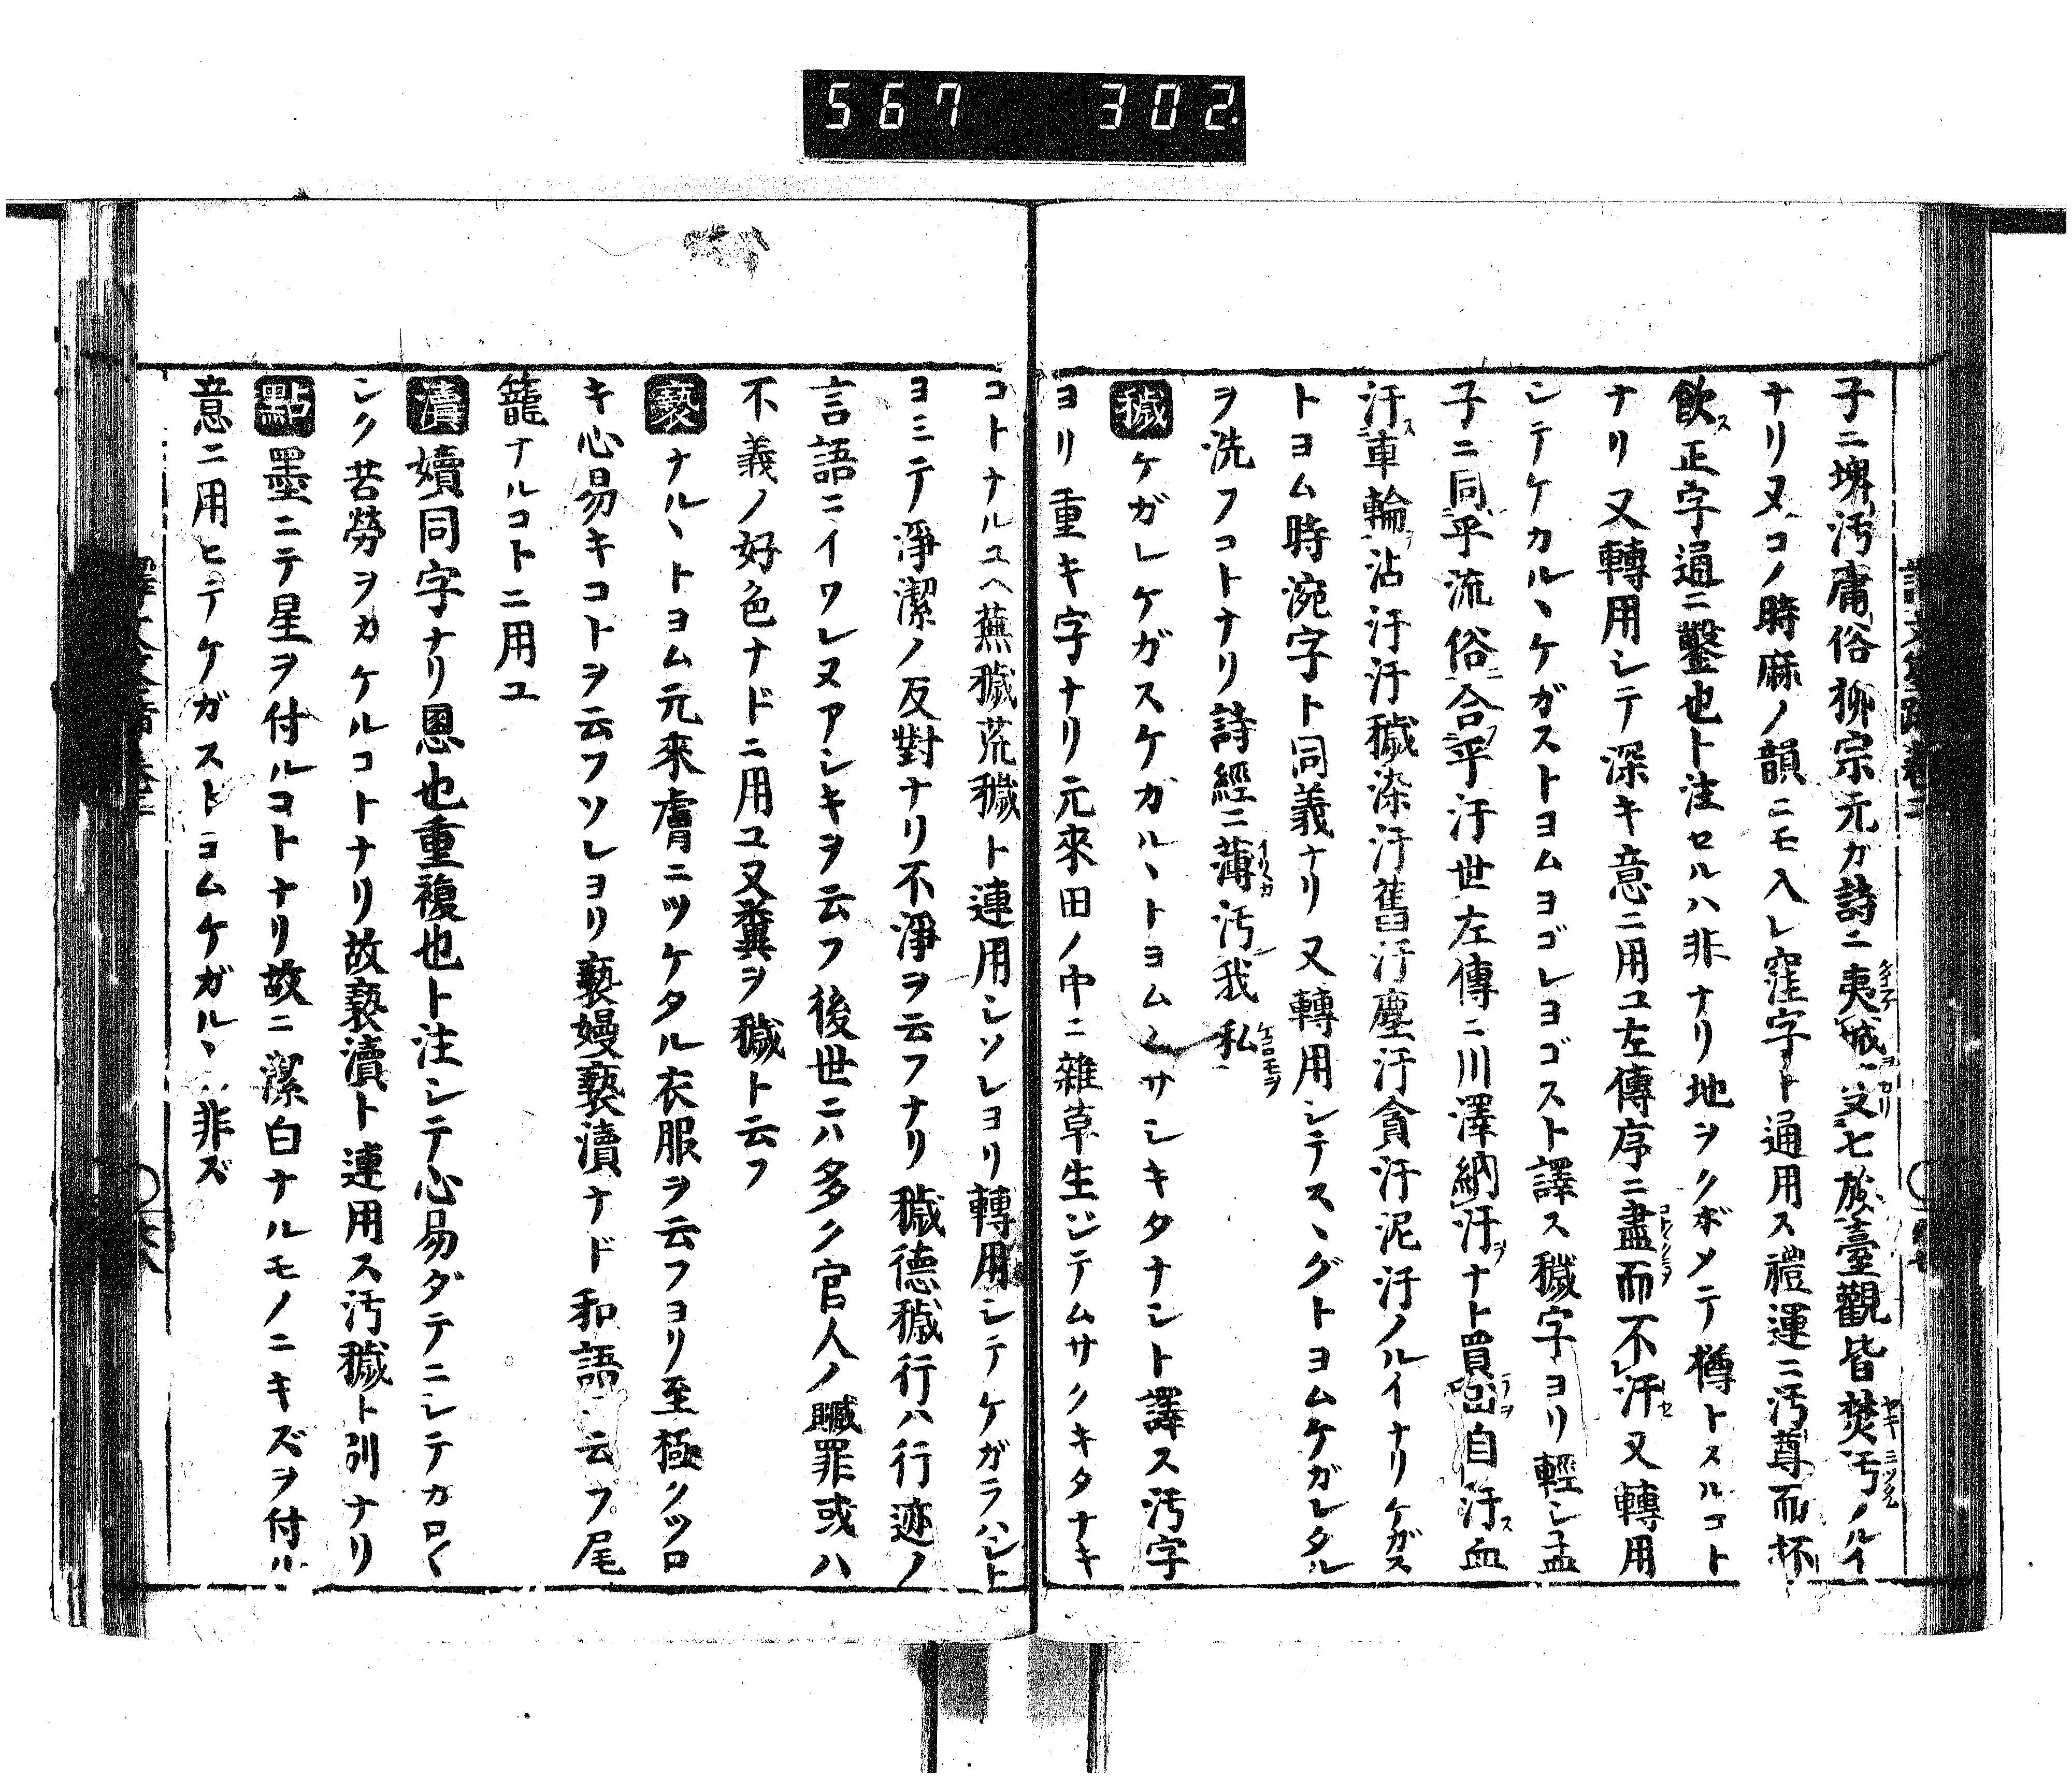 567 302.
子ニ堺汚庸俗柳宗元カ詩ニ夷城七族臺觀皆焚汚ノルイ
ナリ又コノ時麻ノ韻ニモ入レ窪字ト通用ス禮運ニ汚尊而抔
飲ス正字通ニ鑿也ト注セルハ非ナリ地ヲクボメテ樽トスルコト
ナリ又轉用シテ深キ意ニ用ユ左傳序ニ盡而不汙又轉用
シテケカルヽケガストヨムヨゴレヨゴスト譯ス穢字ヨリ輕シ孟
子ニ同乎流俗合乎汙世左傳ニ川澤納汙ヲナト買自汙ス血
汙ス車輪沾汙汙穢染汙舊汙塵汙貪汙泥汙ノルイナリケガス
トヨム時涴字ト同義ナリ又轉用シテスヽグトヨムケガレタル
ヲ洗フコトナリ詩經ニ薄汚我私
穢ケガレケガスケガルヽトヨムムサシキタナシト譯ス汚字
ヨリ重キ字ナリ元來田ノ中ニ雜草生ジテムサクキタナキ
コトナルユヘ蕪穢荒穢ト連用シソレヨリ轉用シテケガラハシト
ヨミテ淨潔ノ反對ナリ不淨ヲ云フナリ穢德穢行ハ行迹ノ
言語ニイワレヌアシキヲ云フ後世ニハ多ク官人ノ贓罪或ハ
不義ノ好色ナドニ用ユ又糞ヲ穢ト云フ
褻ナルヽトヨム元來膚ニツケタル衣服ヲ云フヨリ至極クツロ
キ心易キコトヲ云フソレヨリ褻嫚褻瀆ナド和語云フ尾
籠ナルコトニ用ユ
瀆嬻同字ナリ慁也重複也ト注シテ心易ダテニシテカロ〱
シク苦勞ヲカケルコトナリ故褻瀆ト連用ス汚穢ト別ナリ
點墨ニテ星ヲ付ルコトナリ故ニ潔白ナルモノニキズヲ付ル
意ニ用ヒテケガストヨムケガルヽ非ズ